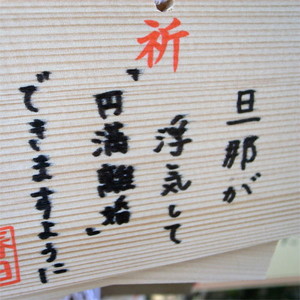 祈
旦那が
浮気して
"円満離婚"
できますように